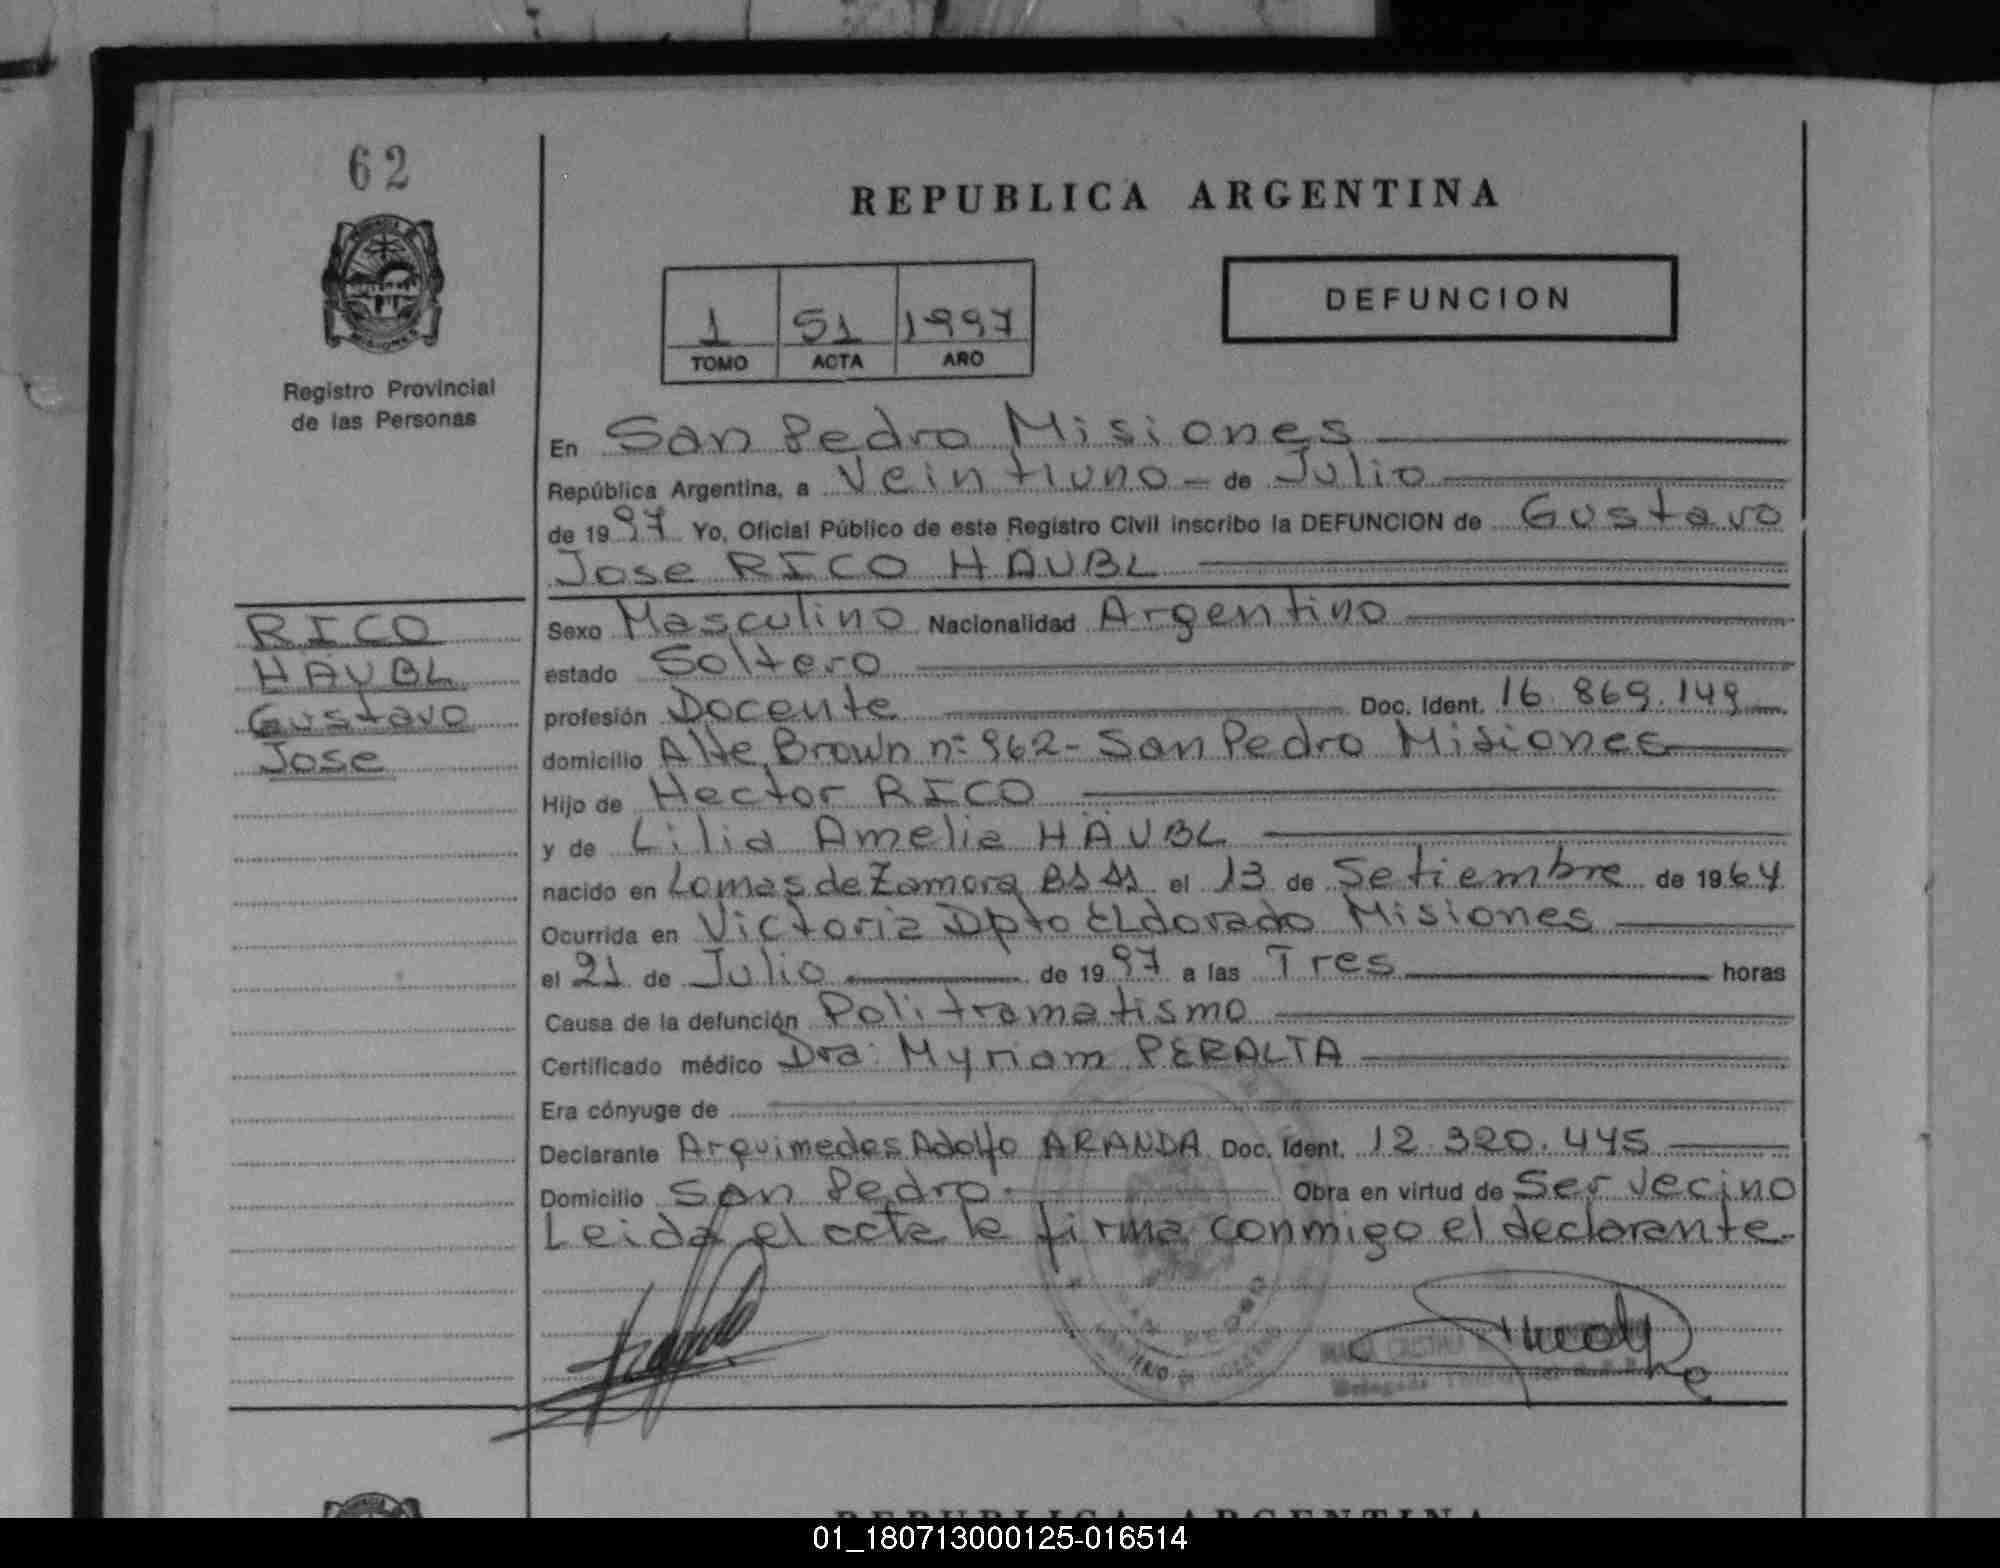 62
REPUBLICA ARGENTINA
MISIONES
Registro Provincial
de las Personas
1 51 1997
TOMO ACTA AÑO
DEFUNCION
En San Pedro Misiones
República Argentina, a Veintiuno de Julio
de 1997 Yo, Oficial Público de este Registro Civil inscribo la DEFUNCION de Gustavo
Jose RICO HAUBL
RICO
HÄUBL
Gustavo
Jose
Sexo Masculino Nacionalidad Argentino
estado Soltero
profesión Docente Doc. Ident. 16.869.149
domicilio Alte Brown nº 962 - San Pedro Misiones
Hijo de Hector RICO
y de Lilia Amelia HÄUBL
nacido en Lomas de Zamora BS AS el 13 de Setiembre de 1964
Ocurrida en Victoria Dpto ELdorado Misiones
el 21 de Julio de 1997 a las Tres horas
Causa de la defunción Politramatismo
Certificado médico Dra: Myriam PERALTA
Era cónyuge de
Declarante Arquimedes Adolfo ARANDA Doc. Ident. 12.320.445
Domicilio San Pedro Obra en virtud de Ser vecino
Leida el acta la firma conmigo el declarante-
SAN PEDRO
REPUBLICA ARGENTINA
01_180713000125-016514